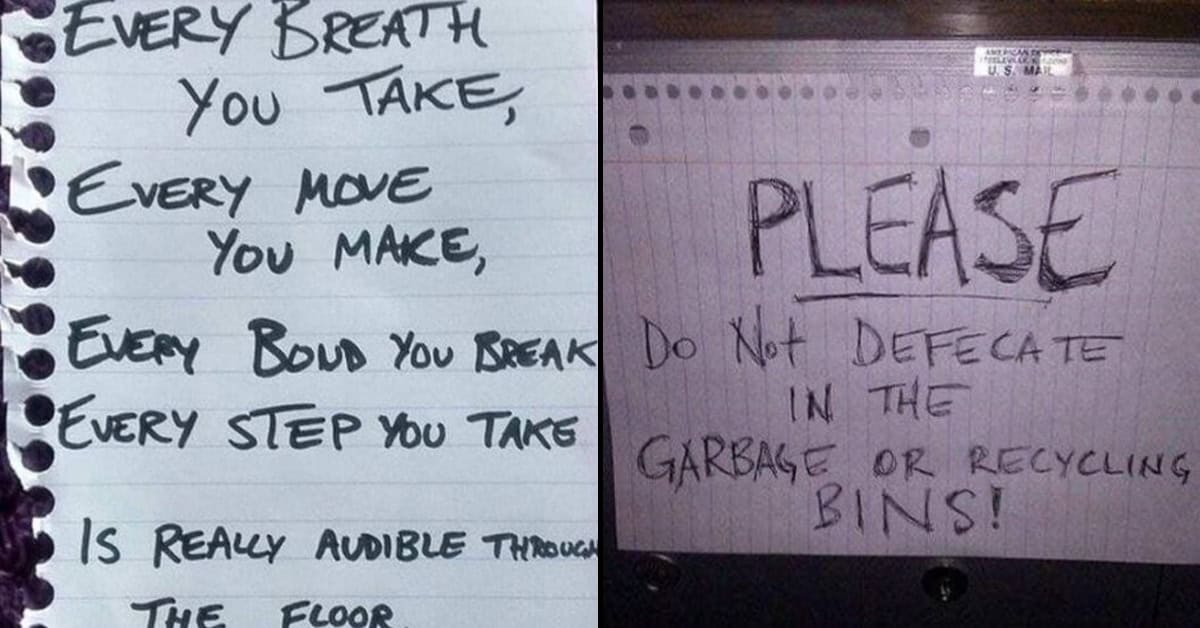 EVERY BREATH
YOU TAKE,
EVERY MOVE
YOU MAKE,
EVERY BOND YOU BREAK
EVERY STEP YOU TAKE
IS REALLY AUDIBLE THROUGH
THE FLOOR
AMERICAN
U. S. MAIL
PLEASE
DO NOT DEFECATE
IN THE
GARBAGE OR RECYCLING
BINS!